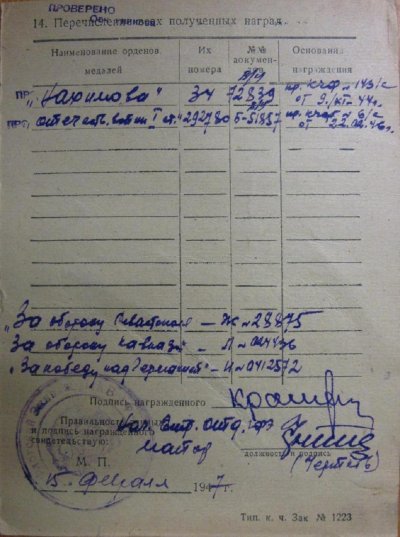 ПРОВЕРЕНО
14. Перечисление всех полученных наград.
Наименование орденов, медалей
Их номера
№№ докумен-
Основания награждения
„Нахимова" 34 72839 пр. КЧФ № 143/с
от 44г.
отечеств. войны I ст. 292780 Б-51857 пр. КЧФ № 6/с
от 22.02.46г.
„За оборону Севастополя — Ж №28875
За оборону Кавказа — Л №
„За победу над Германией" — И № 0412572
Подпись награжденного
Правильность
и подпись награжденного
свидетельствую:
майор
должность и подпись
М. П.
15. февраля 1947г.
Тип. к. ч. Зак № 1223